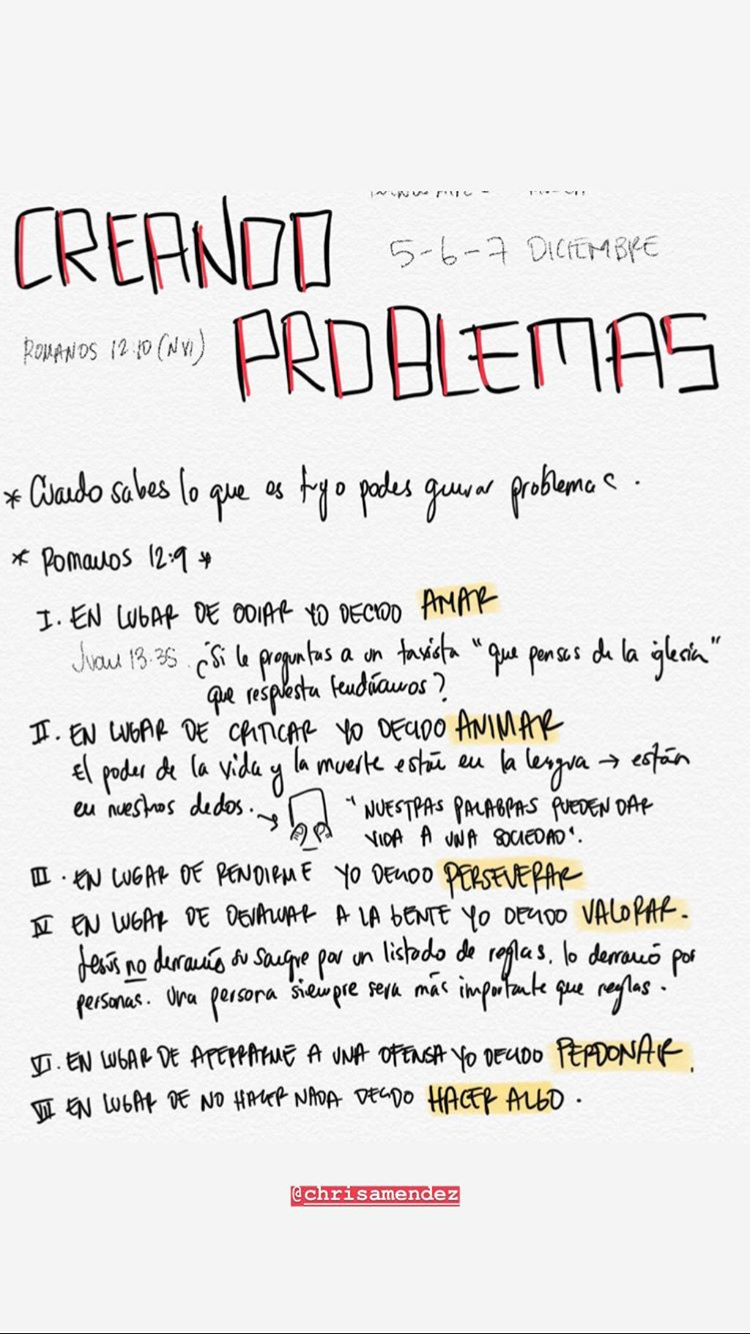 CREANDO
5-6-7 DICIEMBRE
ROMANOS 12:10 (NVI)
PROBLEMAS
* Cuando sabes lo que es tuyo podes guerar problemas.
* Romanos 12:9 *
I. EN LUGAR DE ODIAR YO DECIDO AMAR
Juan 13:35. ¿Si le preguntas a un taxista "que pensas de la iglesia"
que respuesta tendríamos?
II. EN LUGAR DE CRITICAR YO DECIDO ANIMAR
El poder de la vida y la muerte están en la lengua → están
en nuestros dedos. → "NUESTRAS PALABRAS PUEDEN DAR
VIDA A UNA SOCIEDAD".
III. EN LUGAR DE RENDIRME YO DECIDO PERSEVERAR
IV EN LUGAR DE DEVALUAR A LA GENTE YO DECIDO VALORAR.
Jesús no derramó su sangre por un listado de reglas, lo derramó por
personas. Una persona siempre sera más importante que reglas.
VI. EN LUGAR DE AFERRARME A UNA OFENSA YO DECIDO PERDONAR.
VII EN LUGAR DE NO HACER NADA DECIDO HACER ALGO.
@chrisamendez